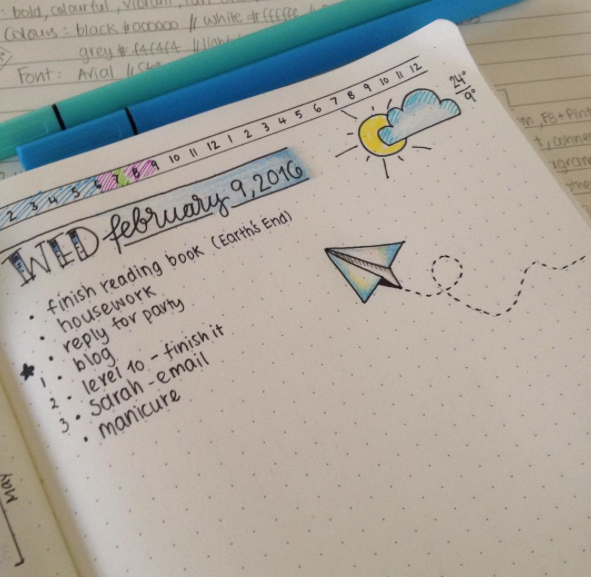 : bold, colourful, vibrant,
Colours: black #000000 // white #ffffff //
grey #f4f4f4 //
Font: Arial //
2 3 4 5 6 7 8 9 10 11 12 1 2 3 4 5 6 7 8 9 10 11 12
24°
9°
WED february 9, 2016
• finish reading book (Earth's End)
• housework
• reply for party
★ • blog
1 • level 10 - finish it
2 • Sarah - email
3 • manicure
May